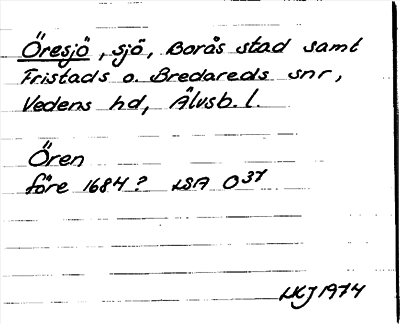 Öresjö, sjö, Borås stad samt
Fristads o. Bredareds snr,
Vedens hd, Älvsb. l.
Ören
före 1684? LSA O37
LKJ 1974